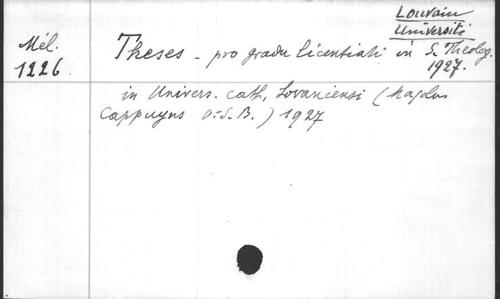 Louvain
Université
Mél.
1226
Theses - pro gradu licentiati in S. Theolog.
1927.
in Univers. cath. Lovaniensi (Maplus
Cappuyns O.S.B.) 1927